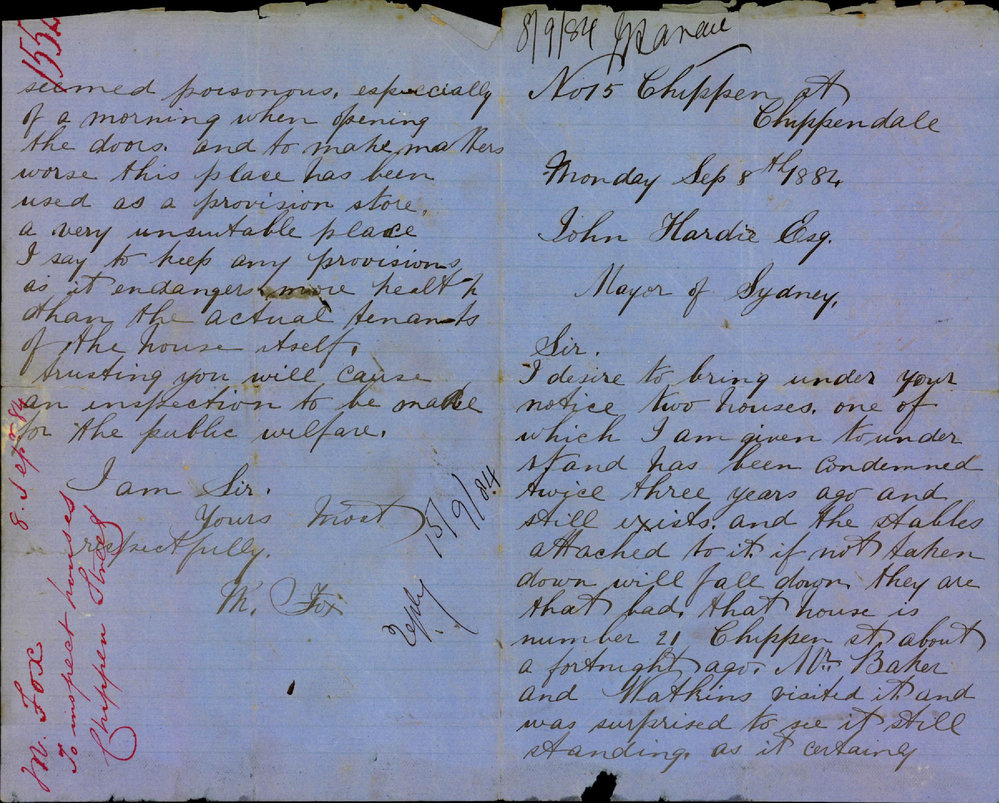 8/9/84
No 15 Chippen st
Chippendale
Monday Sep 8th 1884
John Hardie Esq.
Mayor of Sydney,
Sir.
I desire to bring under your
notice two houses. one of
which I am given to under
stand has been condemned
twice three years ago and
still exists. and the stables
attached to it if not taken
down will fall down. they are
that bad. that house is
number 21 Chippen st, about
a fortnight ago. Mr. Baker
and Watkins visited it and
was surprised to see it still
standing. as it certainly
seemed poisonous, especially
of a morning when opening
the doors. and to make matters
worse this place has been
used as a provision store,
a very unsuitable place
I say to keep any provisions
as it endangers more health
than the actual tenants
of the house itself.
trusting you will cause
an inspection to be made
for the public welfare.
I am Sir.
Yours Most
respectfully.
M. Fox
Reply 15/9/84
1552
M. Fox 8. Sepr 84
To inspect houses
Chippen Street